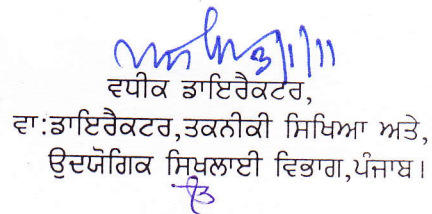 3/1/11
ਵਧੀਕ ਡਾਇਰੈਕਟਰ,
ਵਾ:ਡਾਇਰੈਕਟਰ,ਤਕਨੀਕੀ ਸਿਖਿਆ ਅਤੇ,
ਉਦਯੋਗਿਕ ਸਿਖਲਾਈ ਵਿਭਾਗ,ਪੰਜਾਬ।